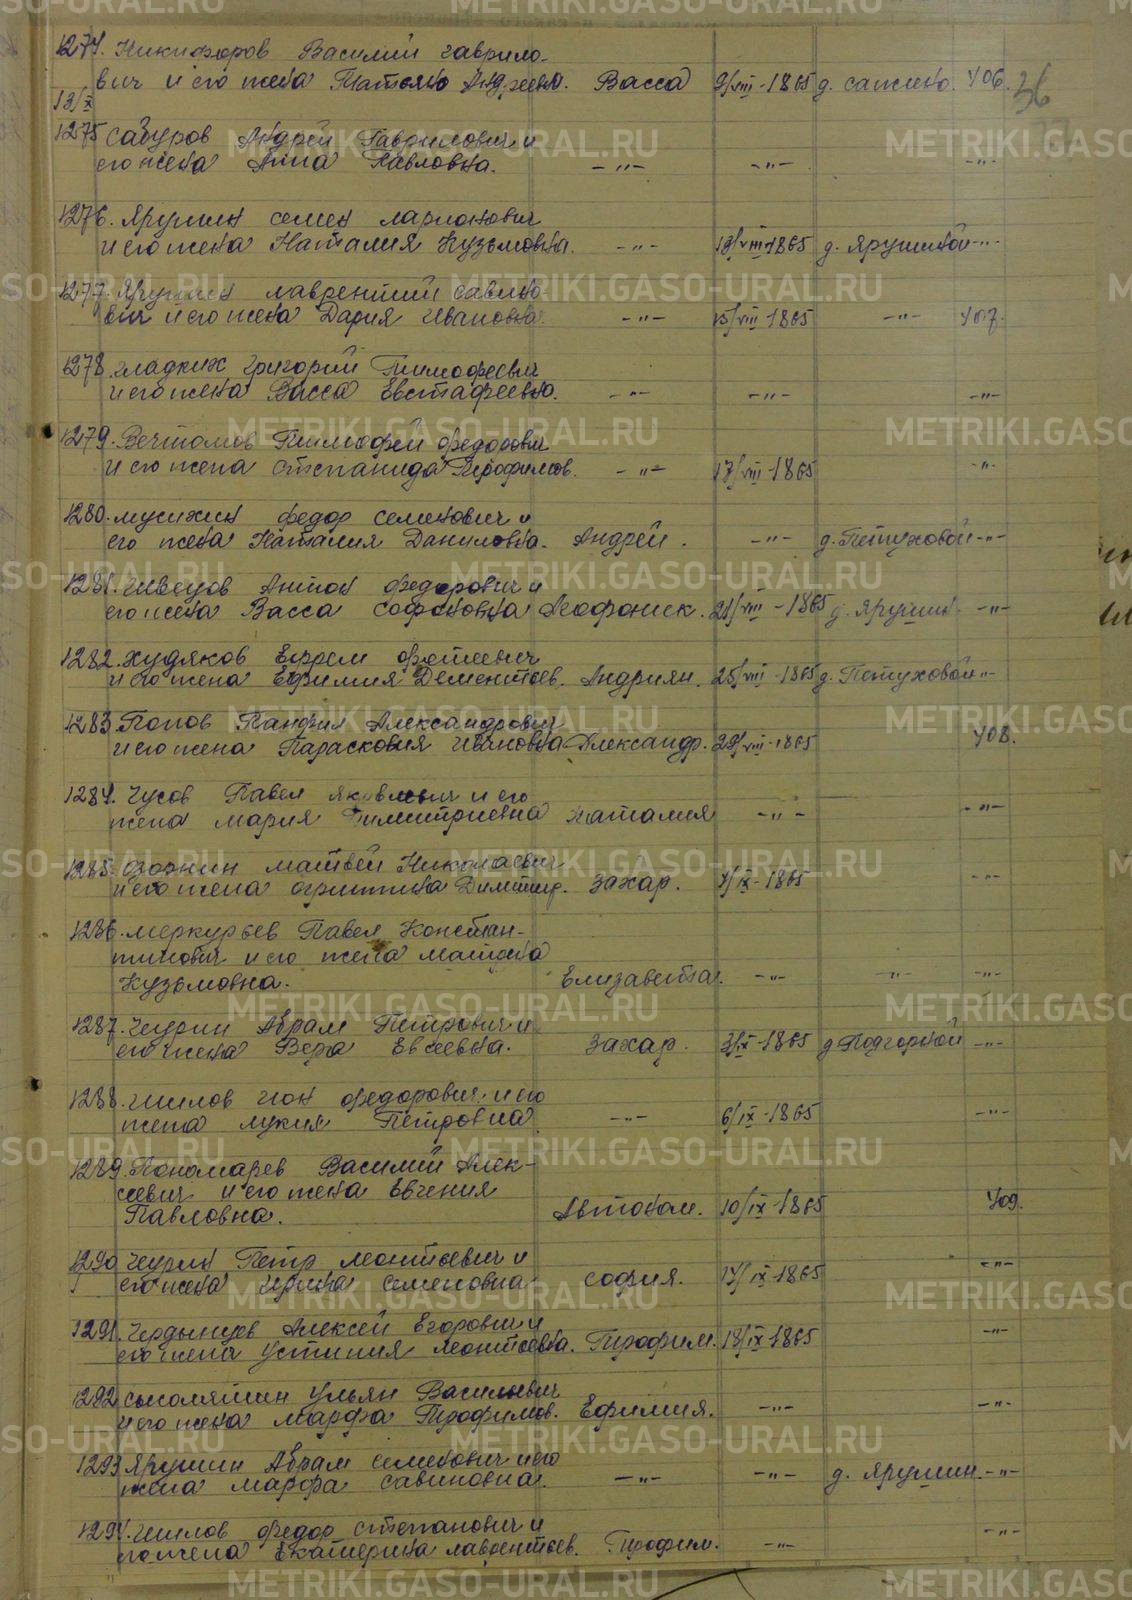 36
1274. Никифоров Василий Гаврило-
вич и его жена Татьяна Андреевна. Васса 9/VIII-1865 д. Сажино. 406.
13/X
1275 Сабуров Андрей Гаврилович и
его жена Анна Павловна. -"- -"- -"-
1276. Ярушин Семен Ларионович
и его жена Наталия Кузьмовна. -"- 13/VIII-1865 д. Ярушиной -"-
1277. Ярушин Лаврентий Савино-
вич и его жена Дария Ивановна. -"- 15/VIII-1865 -"- 407.
1278. Гладких Григорий Тимофеевич
и его жена Васса Евстафеевна. -"- -"- -"-
1279. Вечтомов Тимофей Федорович
и его жена Степанида Трофимов. -"- 17/VIII-1865 -"-
1280. Мусихин Федор Семенович и
его жена Наталия Даниловна. Андрей. -"- д. Петуховой -"-
1281. Швецов Антон Федорович и
его жена Васса Софоновна Агофоник. 21/VIII-1865 д. Ярушин. -"-
1282. Худяков Ефрем Фотиевич
и его жена Ефимия Дементьев. Андриян. 25/VIII-1865 д. Петуховой -"-
1283. Попов Панфил Александрович
и его жена Парасковия Ивановна Александр. 29/VIII-1865 408.
1284. Чусов Павел Яковлевич и его
жена Мария Димитриевна Наталия -"- -"-
1285. Матвей Николаевич
и его жена Огрипина Димитр. Захар. 1/IX-1865 -"-
1286. Меркурьев Павел Констан-
тинович и его жена Матрена
Кузьмовна. Елизавета. -"- -"- -"-
1287. Чурин Абрам Петрович и
его жена Вера Евсеевна. Захар. 3/IX-1865 д Подгорной -"-
1288. Шилов Ион Федорович и его
жена Лукия Петровна. -"- 6/IX-1865 -"-
1289. Пономарев Василий Алек-
сеевич и его жена Евгения
Павловна. Автоном. 10/IX-1865 409.
1290 Чурин Петр Леонтьевич и
его жена Ирина Семеновна София. 17/IX-1865 -"-
1291. Чердынцев Алексей Егорович и
его жена Устиния Леонтьевна. Трофим. 18/IX-1865 -"-
1292 Сысолятин Ульян Васильевич
и его жена Марфа Трофимов. Ефимия. -"- -"-
1293 Ярушин Абрам Семенович и его
жена Марфа Савиновна. -"- -"- д. Ярушин. -"-
1294. Шилов Федор Степанович и
его жена Екатерина Лаврентьев. Трофим. -"- -"-
METRIKI.GASO-URAL.RU